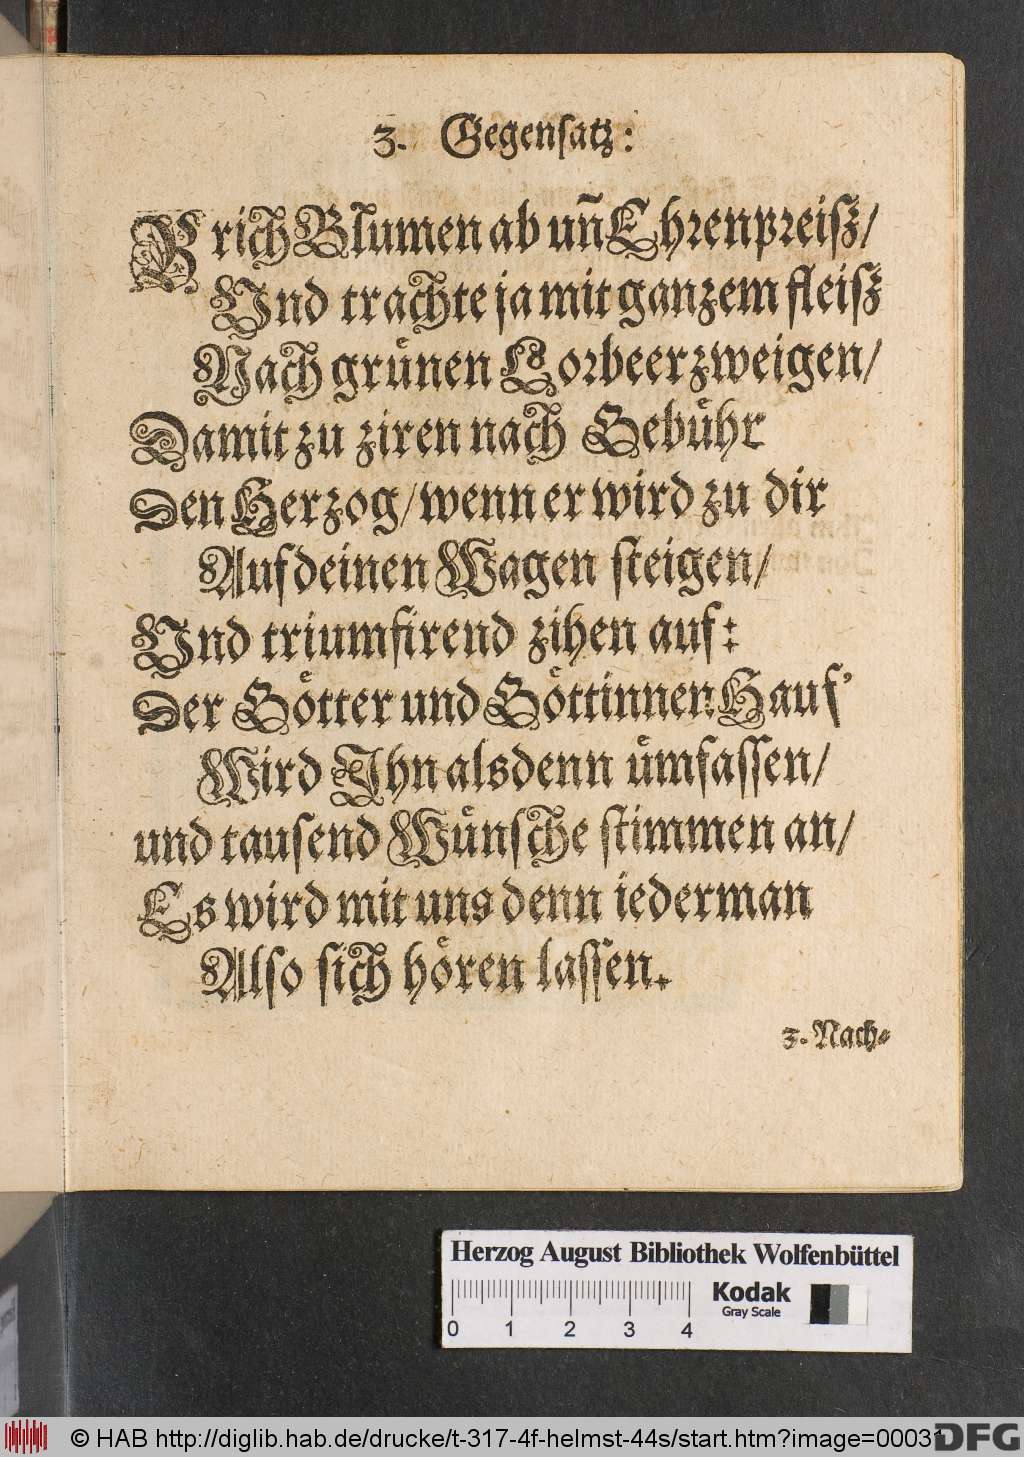 3. Gegensatz:
Brich Blumen ab uñ Ehrenpreiß/
Und trachte ja mit ganzem fleiß
Nach grünen Lorbeerzweigen/
Damit zu ziren nach Gebühr
Den Herzog/wenn er wird zu dir
Auf deinen Wagen steigen/
Und triumfirend zihen auf:
Der Götter und Göttinnen Hauf'
Wird Ihn alsdenn ümfassen/
und tausend Wünsche stimmen an/
Es wird mit uns denn iederman
Also sich hören lassen.
3. Nach-
Herzog August Bibliothek Wolfenbüttel
Kodak
Gray Scale
0 1 2 3 4
© HAB http://diglib.hab.de/drucke/t-317-4f-helmst-44s/start.htm?image=00031
DFG